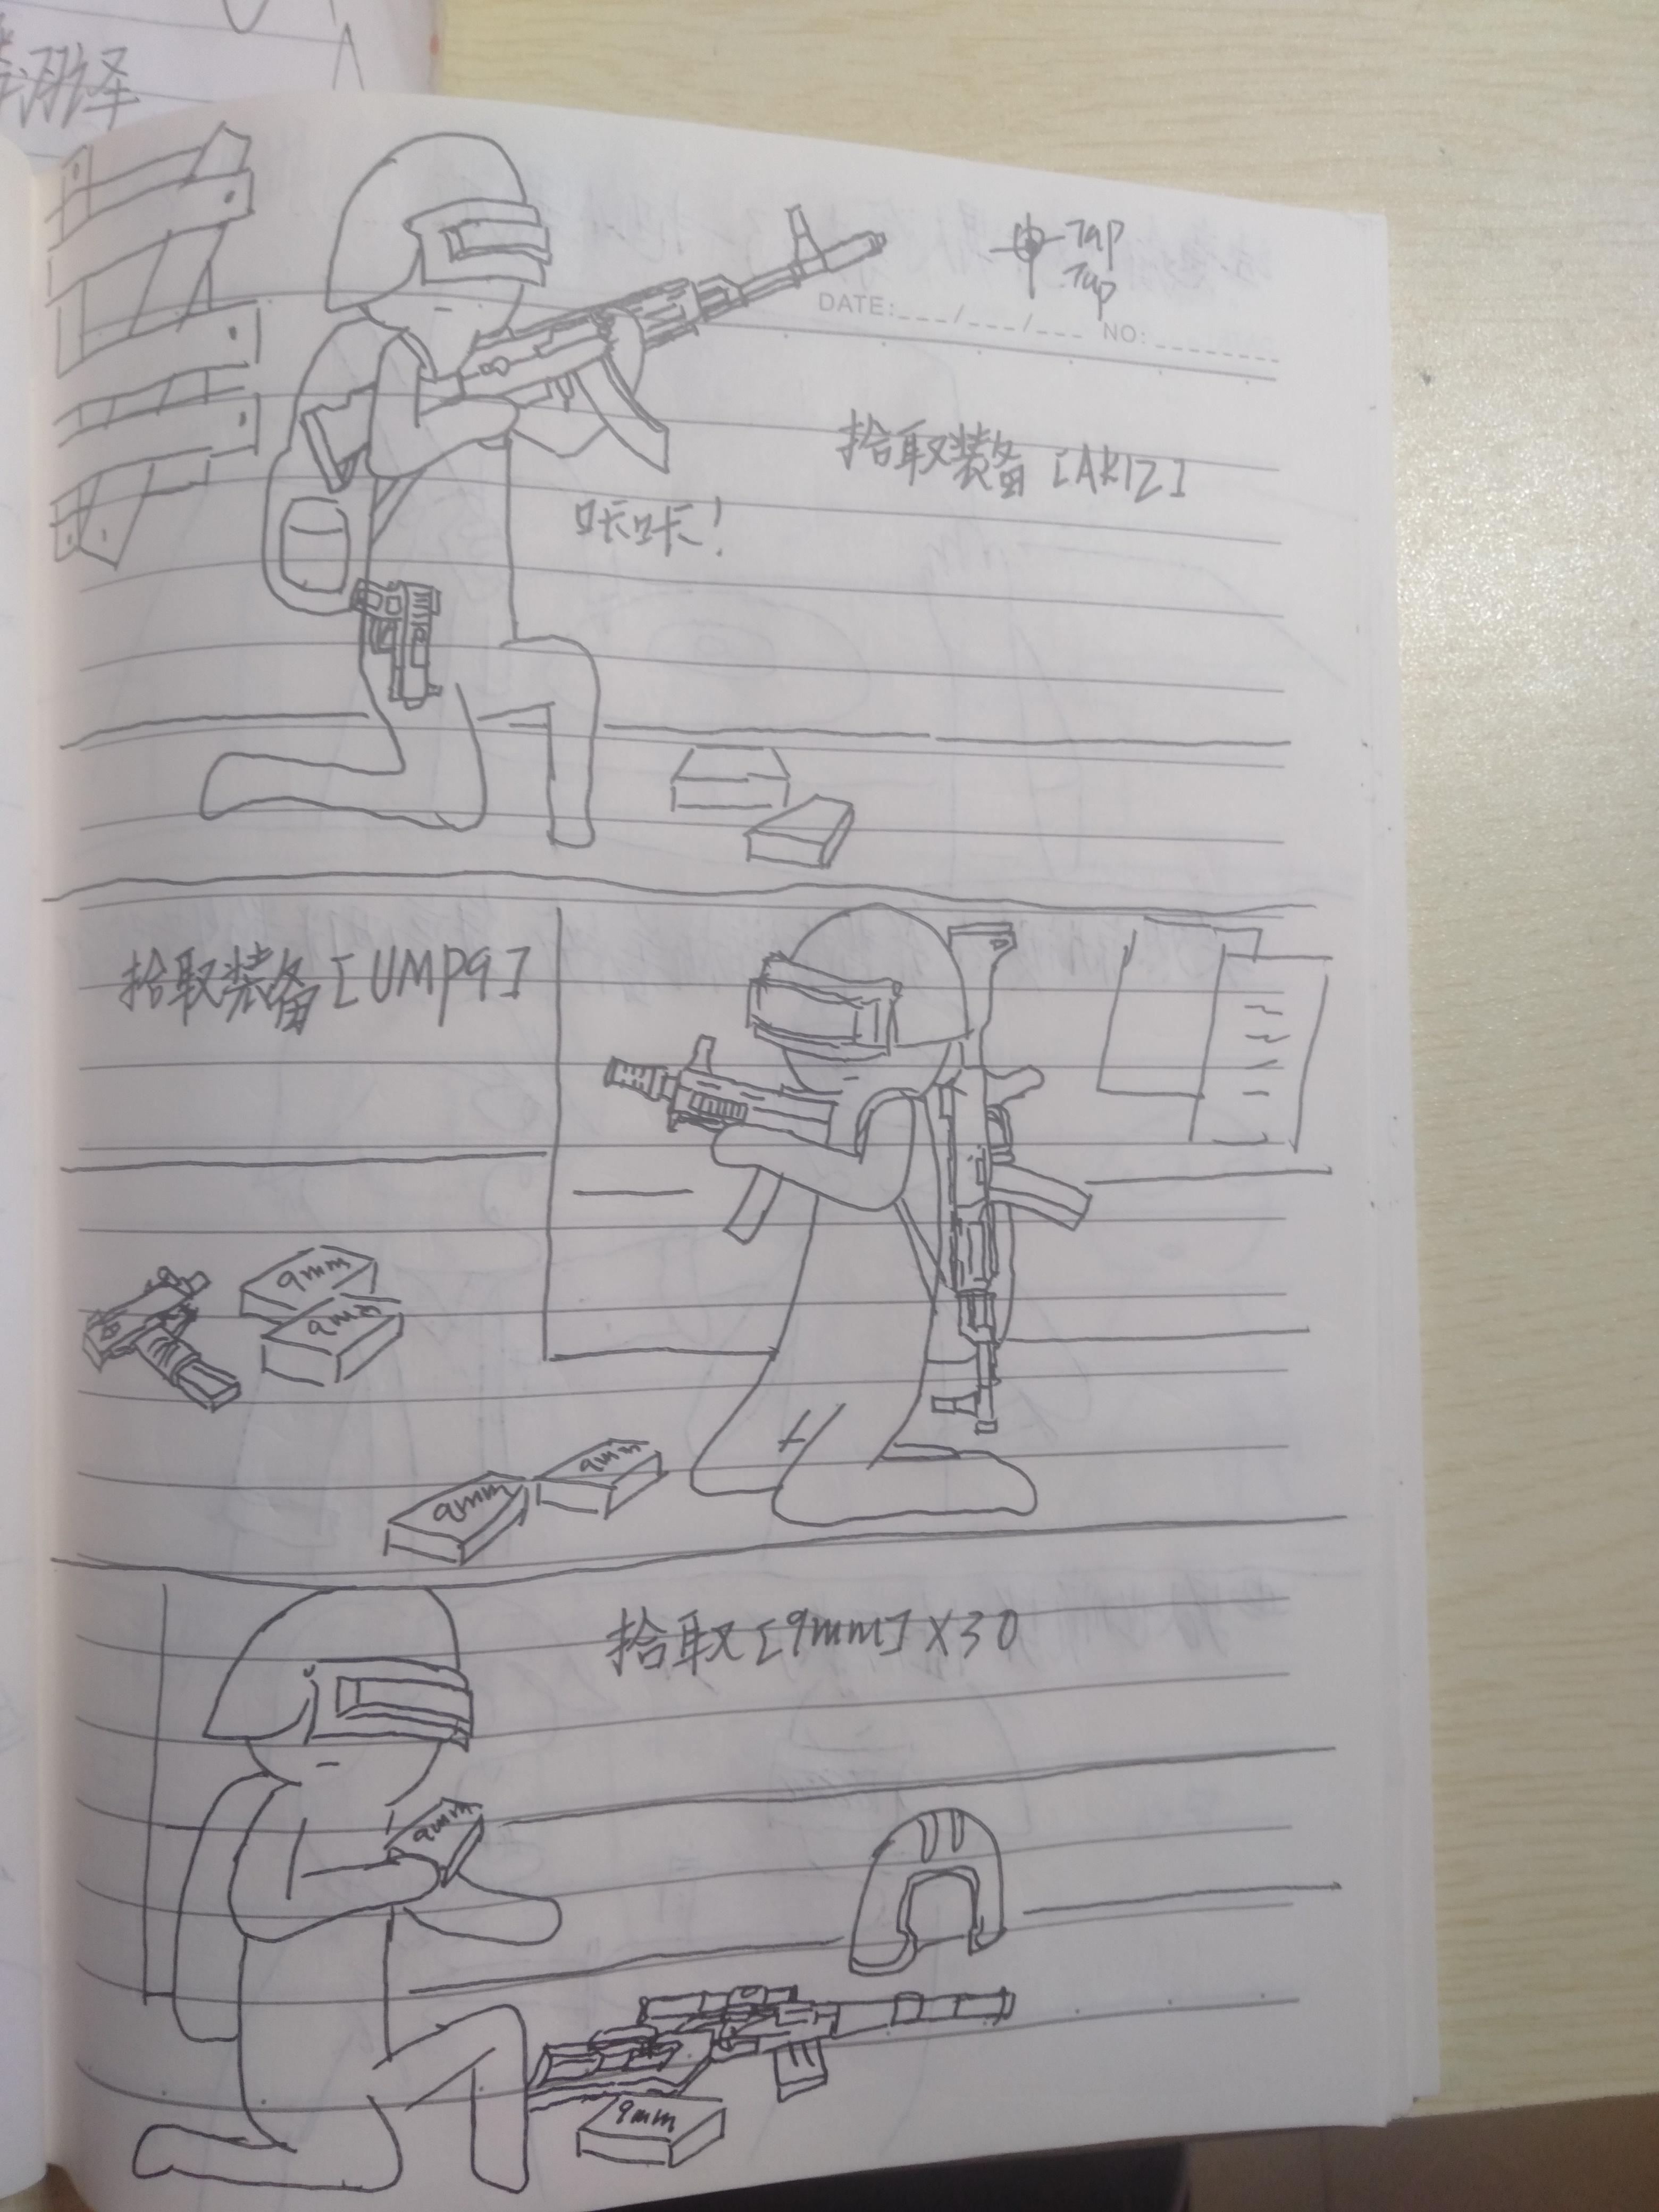 翻译
Tap
Tap
DATE:___/___/___ NO:________
拾取装备[AK12]
咔咔!
拾取装备[UMP9]
9mm
9mm
9mm
9mm
拾取[9mm]X30
9mm
9mm